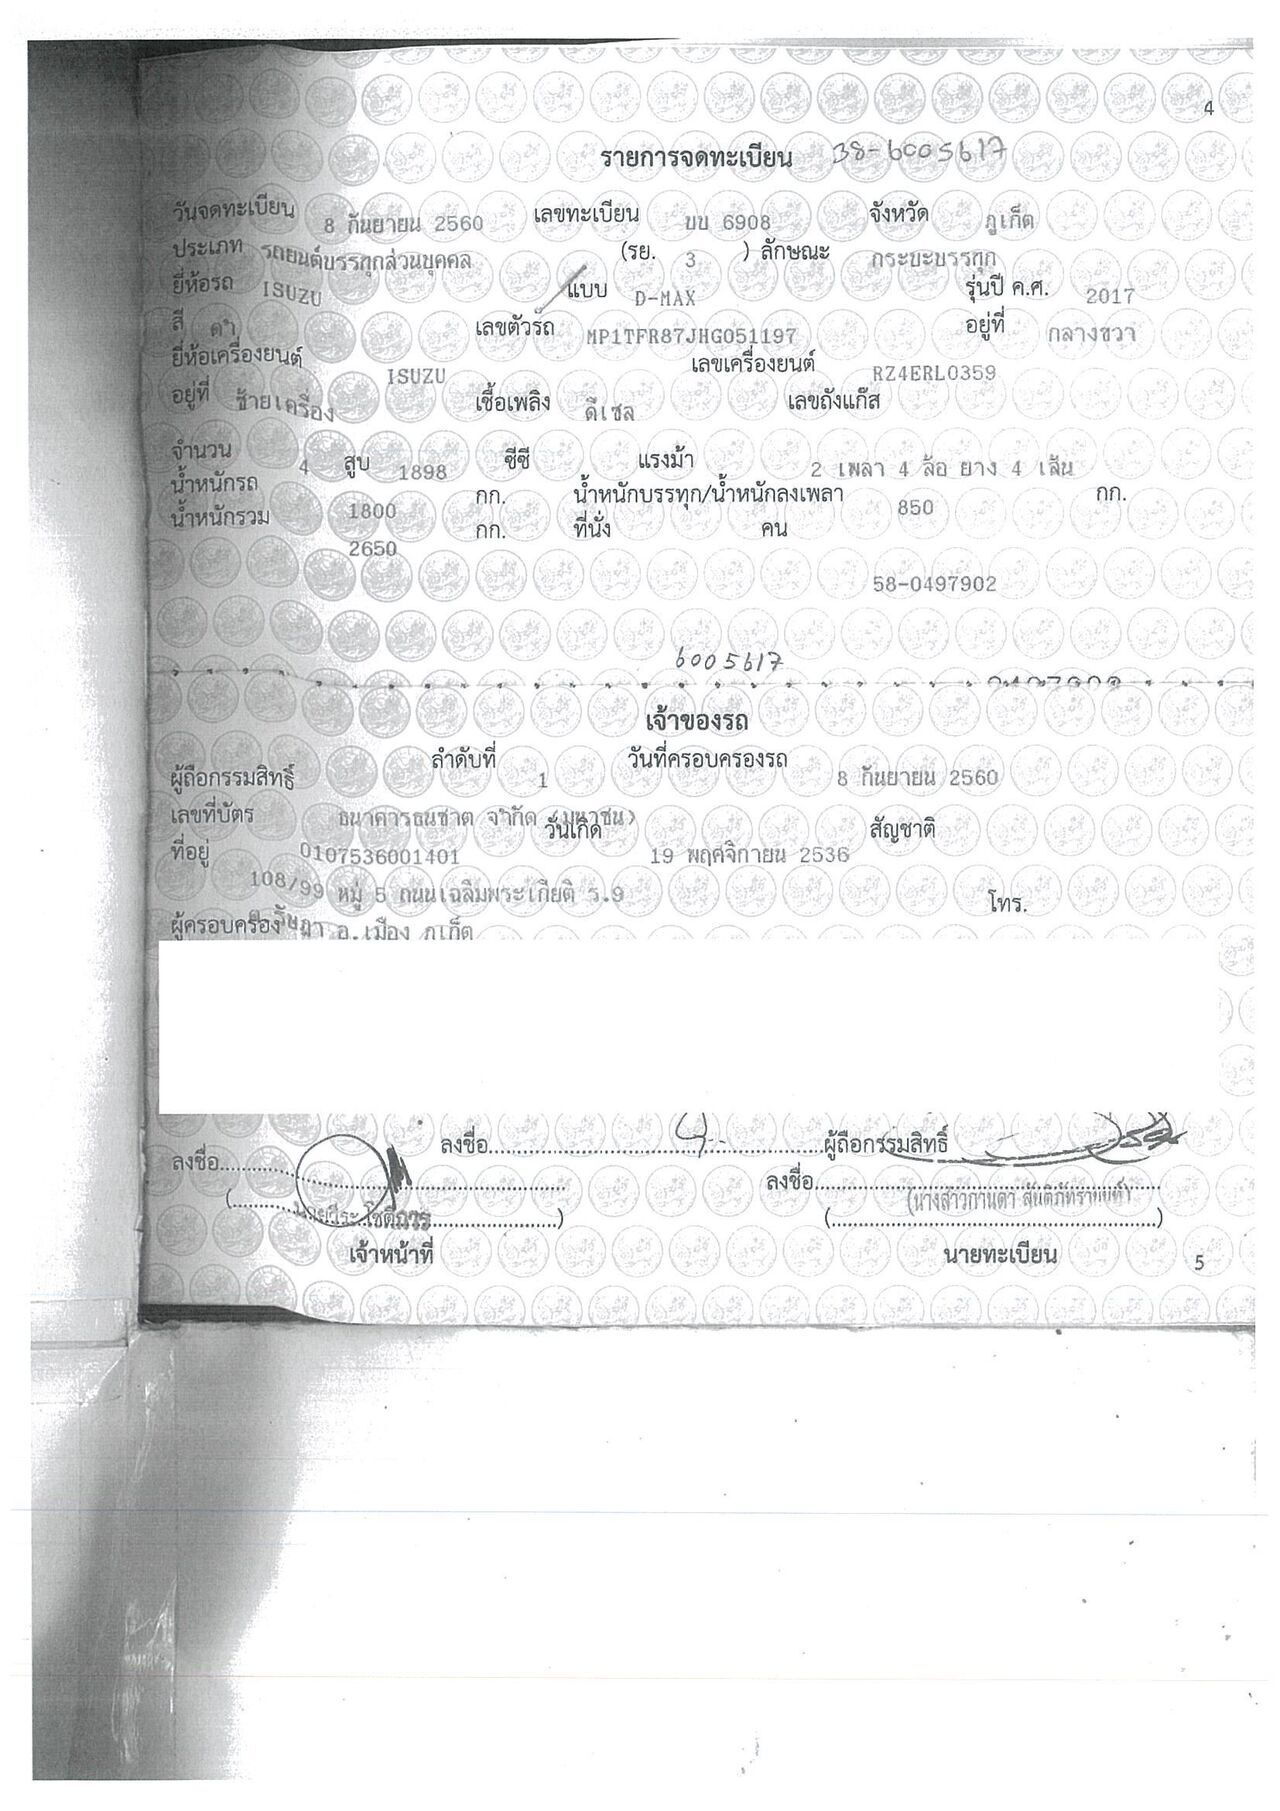 4
รายการจดทะเบียน 38-6005617
วันจดทะเบียน 8 กันยายน 2560 เลขทะเบียน บบ 6908 จังหวัด ภูเก็ต
ประเภท รถยนต์บรรทุกส่วนบุคคล (รย. 3 ) ลักษณะ กระบะบรรทุก
ยี่ห้อรถ ISUZU แบบ D-MAX รุ่นปี ค.ศ. 2017
สี ดำ เลขตัวรถ MP1TFR87JHG051197 อยู่ที่ กลางขวา
ยี่ห้อเครื่องยนต์ ISUZU เลขเครื่องยนต์ RZ4ERL0359
อยู่ที่ ซ้ายเครื่อง เชื้อเพลิง ดีเซล เลขถังแก๊ส
จำนวน 4 สูบ 1898 ซีซี แรงม้า 2 เพลา 4 ล้อ ยาง 4 เส้น
น้ำหนักรถ 1800 กก. น้ำหนักบรรทุก/น้ำหนักลงเพลา 850 กก.
น้ำหนักรวม 2650 กก. ที่นั่ง คน
58-0497902
6005617
เจ้าของรถ
ลำดับที่ 1 วันที่ครอบครองรถ 8 กันยายน 2560
ผู้ถือกรรมสิทธิ์ ธนาคารธนชาต จำกัด (มหาชน)
เลขที่บัตร 0107536001401 วันเกิด 19 พฤศจิกายน 2536 สัญชาติ
ที่อยู่ 108/99 หมู่ 5 ถนนเฉลิมพระเกียติ ร.9
โทร.
ผู้ครอบครอง อ.เมือง ภูเก็ต
ลงชื่อ ผู้ถือกรรมสิทธิ์
ลงชื่อ ลงชื่อ
( ) ( )
เจ้าหน้าที่ นายทะเบียน
5